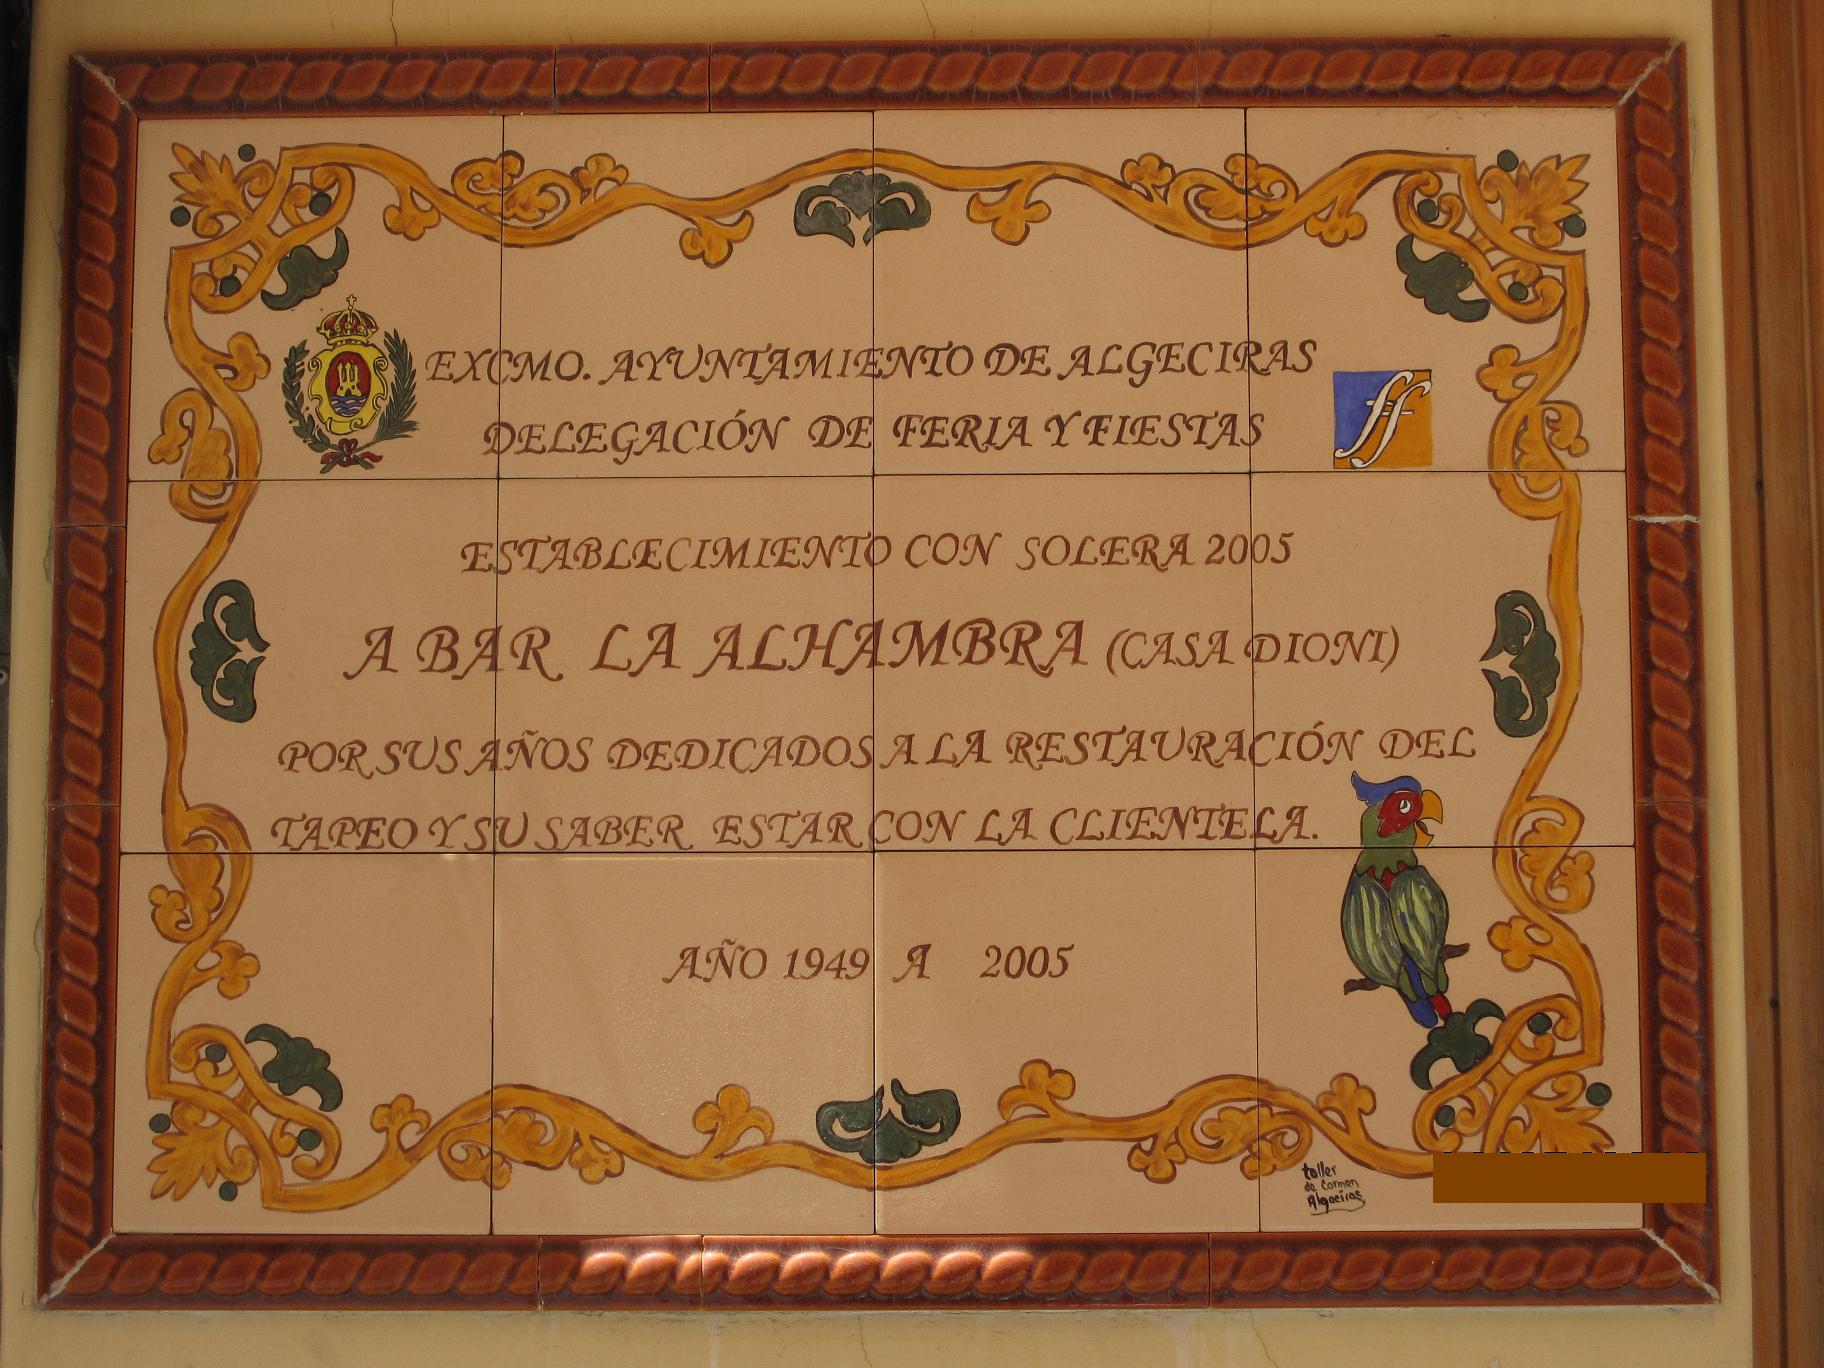 EXCMO. AYUNTAMIENTO DE ALGECIRAS
DELEGACIÓN DE FERIA Y FIESTAS
ff
ESTABLECIMIENTO CON SOLERA 2005
A BAR LA ALHAMBRA (CASA DIONI)
POR SUS AÑOS DEDICADOS A LA RESTAURACIÓN DEL
TAPEO Y SU SABER ESTAR CON LA CLIENTELA.
AÑO 1949 A 2005
taller
de Carmen
Algeciras